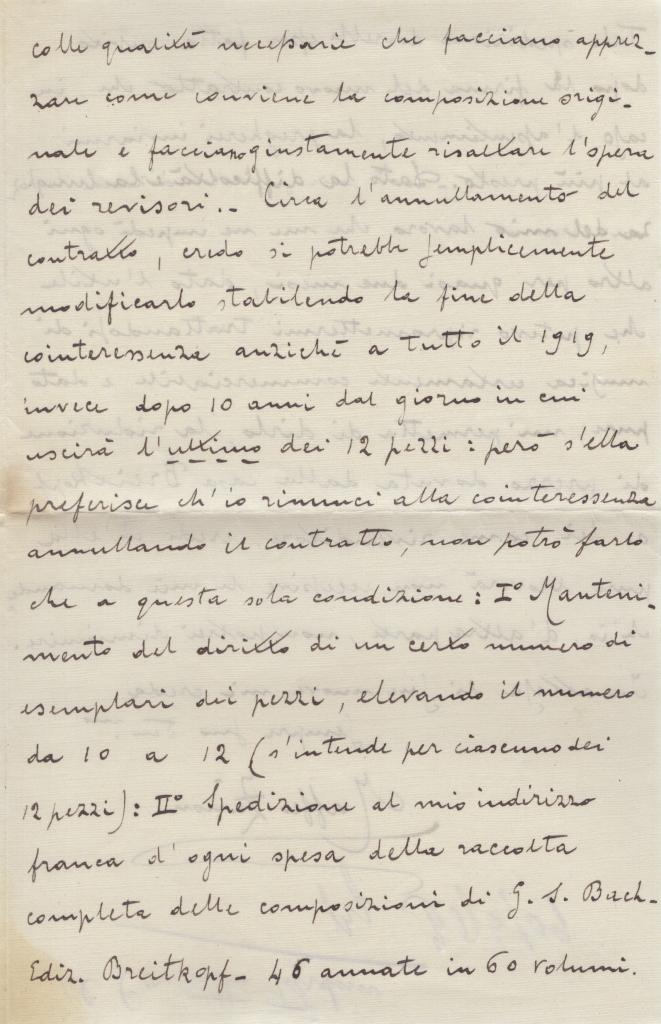 colle qualità necessarie che facciano apprez-
zare come conviene la composizione origi-
nale e facciano giustamente risaltare l'opera
dei revisori.. - Circa l'annullamento del
contratto, credo si potrebbe semplicemente
modificarlo stabilendo la fine della
cointeressenza anzichè a tutto il 1919,
invece dopo 10 anni dal giorno in cui
uscirà l'ultimo dei 12 pezzi: però s'ella
preferisce ch'io rinunci alla cointeressenza
annullando il contratto, non potrò farlo
che a questa sola condizione: I° Manteni-
mento del diritto di un certo numero di
esemplari dei pezzi, elevando il numero
da 10 a 12 (s'intende per ciascuno dei
12 pezzi): II° Spedizione al mio indirizzo
franca d'ogni spesa della raccolta
completa delle composizioni di G. S. Bach-
Ediz. Breitkopf - 46 annate in 60 volumi.